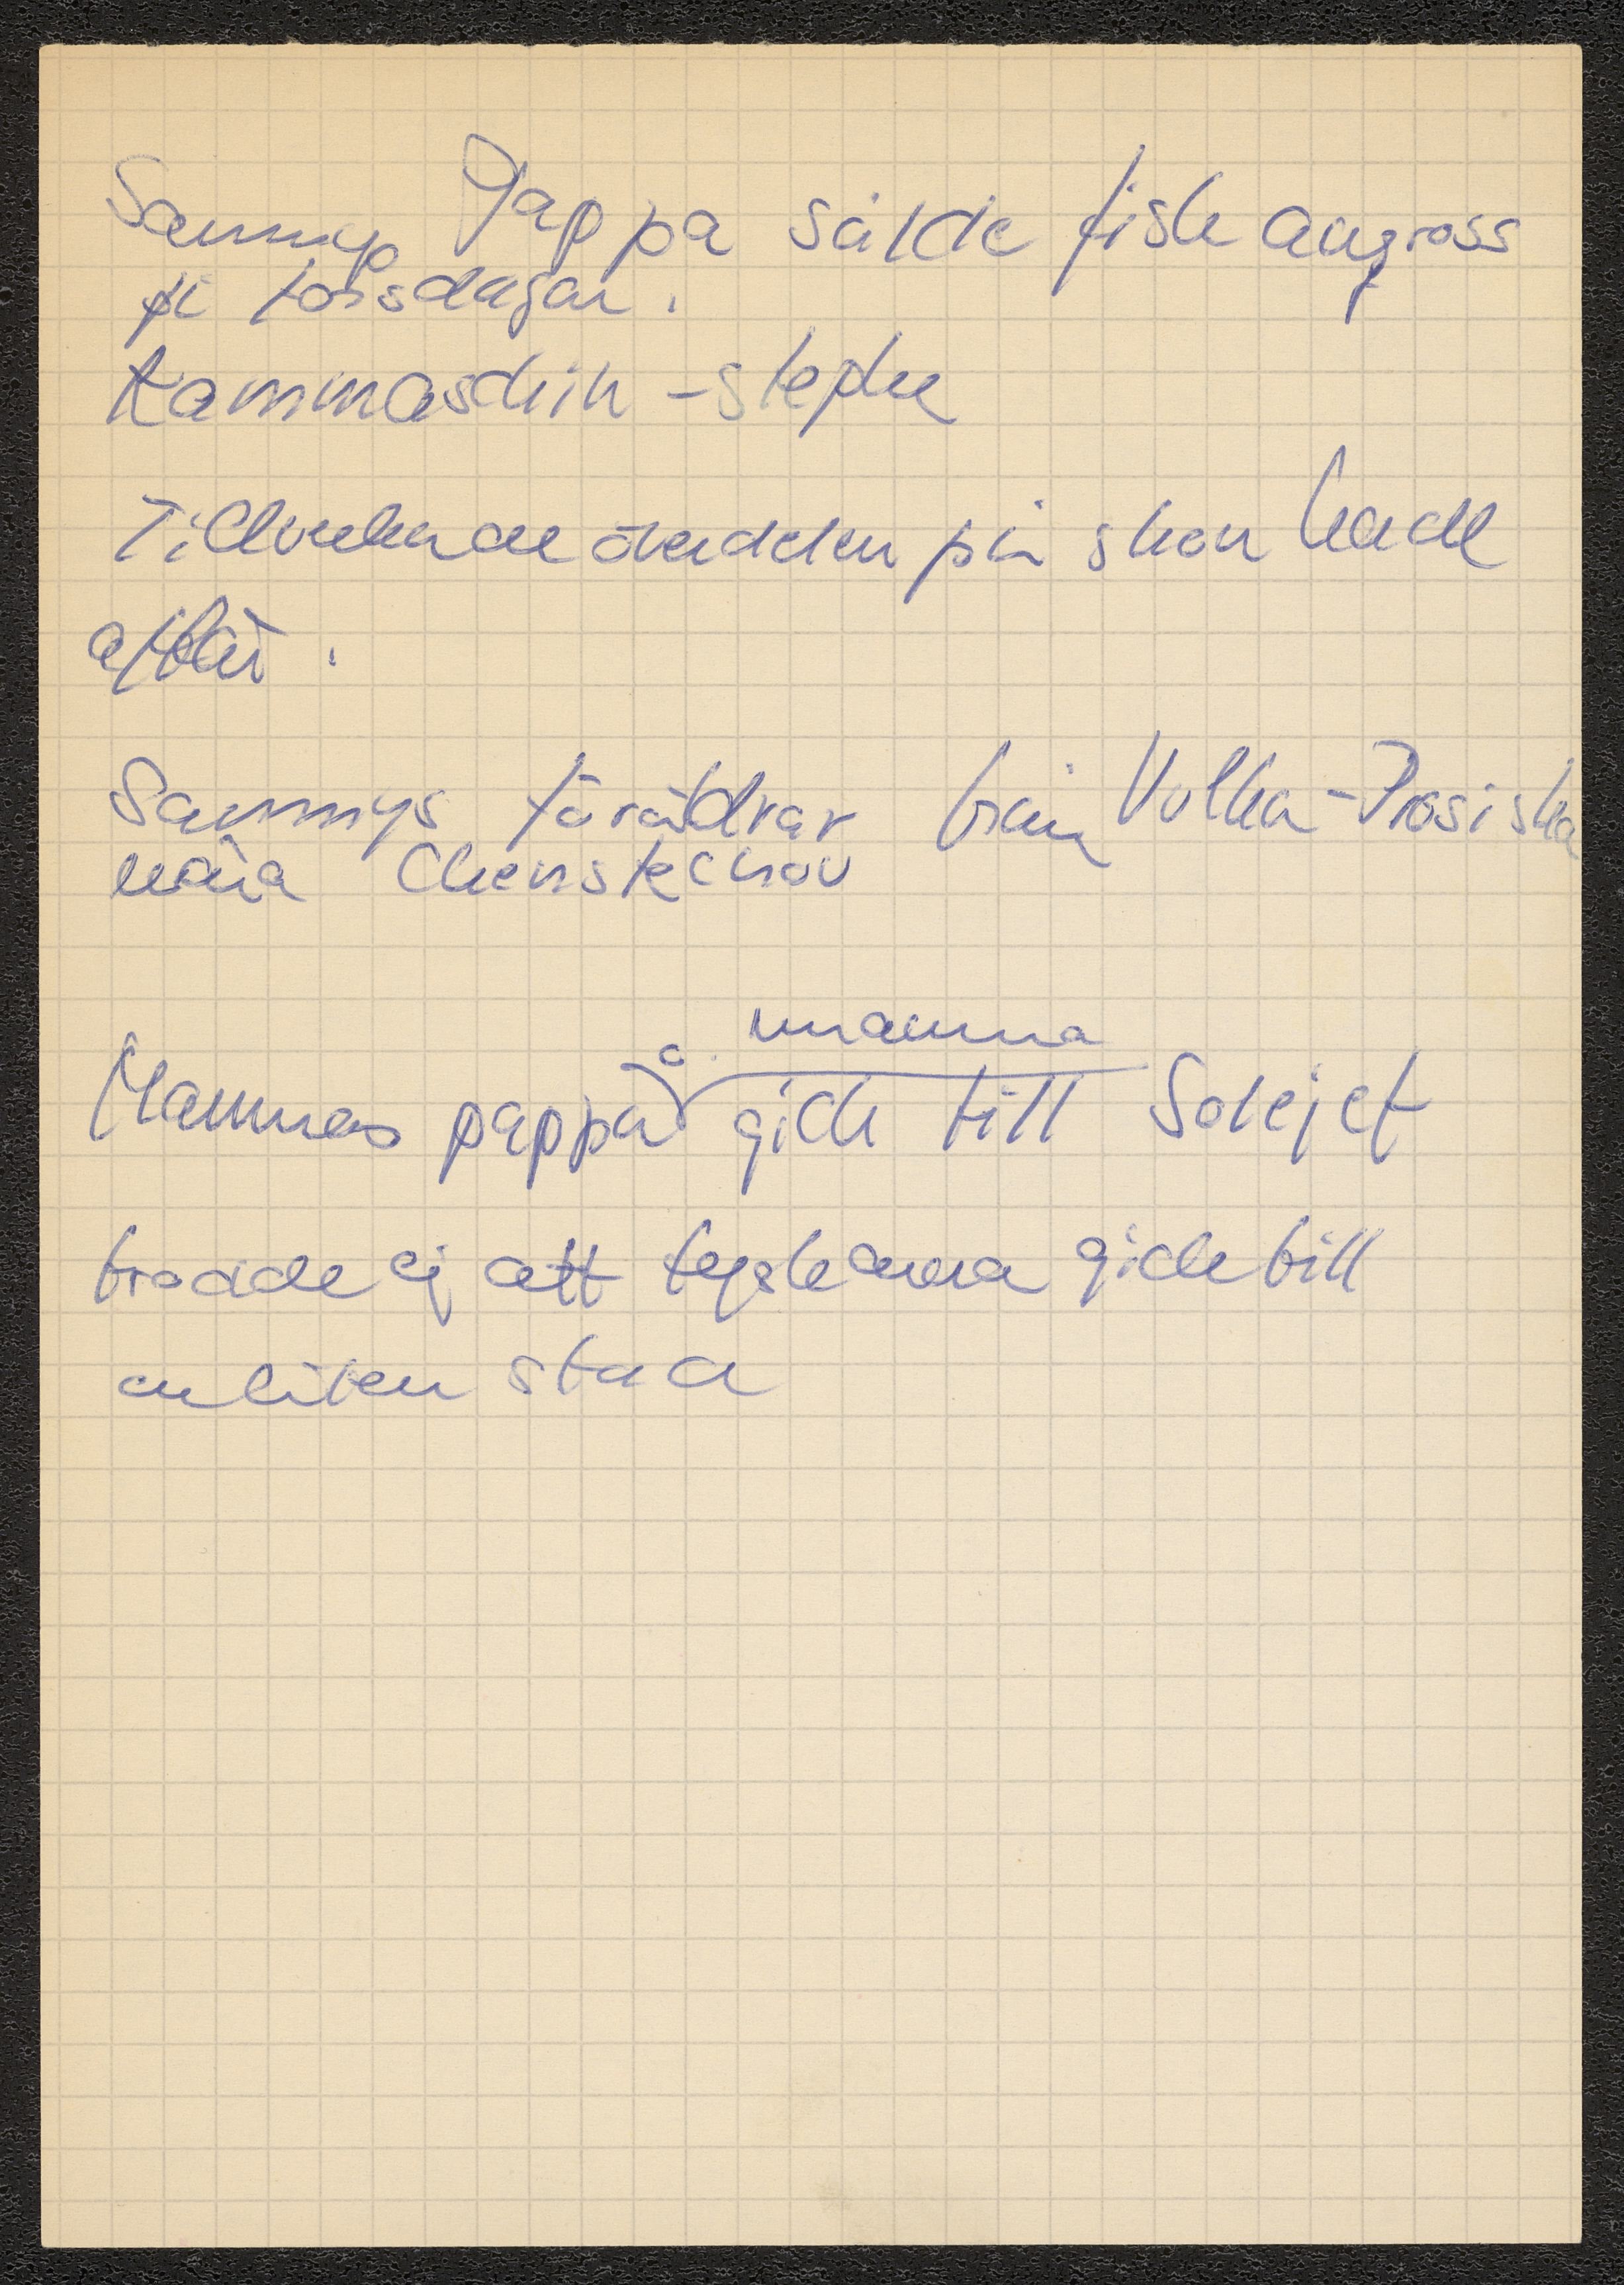 Sammys Pappa sålde fisk angross
på torsdagar.
Kammaschin - stepke
Tillverkade överdelen på skor hade
affär.
Sammys föräldrar från Volka-Prosiska
nära Chenstechov
o. mamma
Mammas pappa gick till Solejef
trodde ej att tyskarna gick till
en liten stad